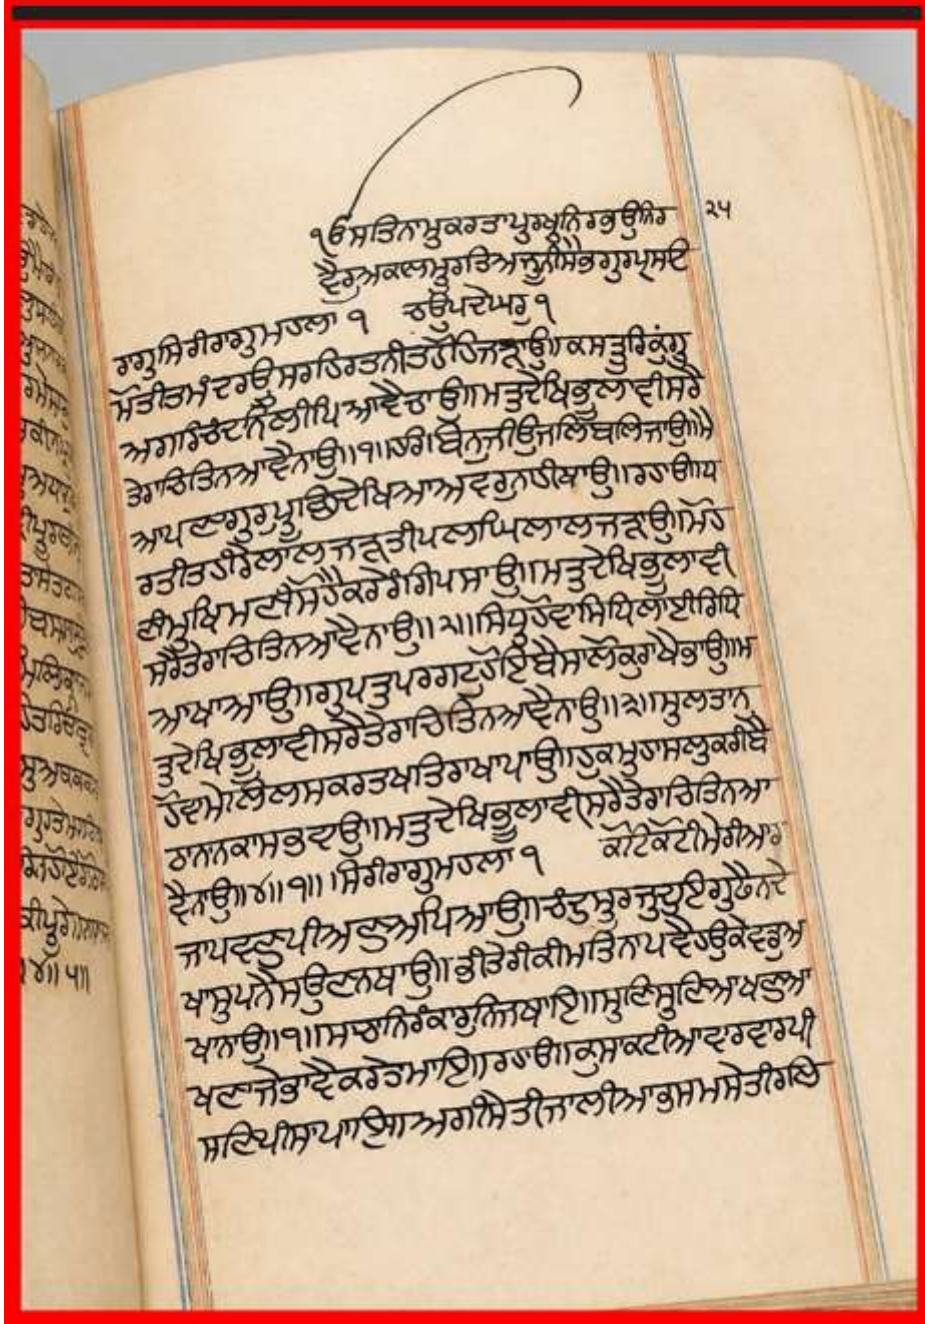 ੨੫
੧ਓ ਸਤਿਨਾਮੁਕਰਤਾਪੁਰਖੁਨਿਰਭਉਨਿਰ
ਵੈਰੁਅਕਾਲਮੂਰਤਿਅਜੂਨੀਸੈਭੰਗੁਰਪ੍ਰਸਾਦਿ
ਰਾਗੁਸਿਰੀਰਾਗੁਮਹਲਾ ੧ ਚਉਪਦੇਘਰੁ ੧
ਮੋਤੀਤਮੰਦਰਊਸਰਹਿਰਤਨੀਤਹੋਹਿਜੜਾਉ॥ਕਸਤੂਰਿਕੁੰਗੂ
ਅਗਰਿਚੰਦਨਿਲੀਪਿਆਵੈਚਾਉ॥ਮਤੁਦੇਖਿਭੂਲਾਵੀਸਰੈ
ਤੇਰਾਚਿਤਿਨਆਵੈਨਾਉ॥੧॥ਹਰਿਬਿਨੁਜੀਉਜਲਿਬਲਿਜਾਉ॥ਮੈ
ਆਪਣਾਗੁਰੁਪੂਛਿਦੇਖਿਆਅਵਰੁਨਾਹੀਥਾਉ॥ਰਹਾਉ॥ਧ
ਰਤੀਤਹੀਰੇਲਾਲਜੜਤੀਪਲਘਿਲਾਲਜੜਾਉ॥ਮੋਹ
ਣੀਮੁਖਿਮਣੀਸੋਹੈਕਰੇਰੰਗਿਪਸਾਉ॥ਮਤੁਦੇਖਿਭੂਲਾਵੀ
ਸਰੈਤੇਰਾਚਿਤਿਨਆਵੈਨਾਉ॥੨॥ਸਿਧੁਹੋਵਾਸਿਧਿਲਾਈਰਿਧਿ
ਆਖਾਆਉ॥ਗੁਪਤੁਪਰਗਟੁਹੋਇਬੈਸਾਲੋਕੁਰਾਖੈਭਾਉ॥ਮ
ਤੁਦੇਖਿਭੂਲਾਵੀਸਰੈਤੇਰਾਚਿਤਿਨਆਵੈਨਾਉ॥੩॥ਸੁਲਤਾਨੁ
ਹੋਵਾਮੇਲਿਲਸਕਰਤਖਤਿਰਾਖਾਪਾਉ॥ਹੁਕਮੁਹਾਸਲੁਕਰੀਬੈ
ਠਾਨਾਨਕਾਸਭਵਾਉ॥ਮਤੁਦੇਖਿਭੂਲਾਵੀਸਰੈਤੇਰਾਚਿਤਿਨਆ
ਵੈਨਾਉ॥੪॥੧॥ ਸਿਰੀਰਾਗੁਮਹਲਾ ੧ ਕੋਟਿਕੋਟੀਮੇਰੀਆਰ
ਜਾਪਵਣੁਪੀਅਣੁਅਪਿਆਉ॥ਚੰਦੁਸੂਰਜੁਦੁਇਗੁਫੈਨਦੇ
ਖਾਸੁਪਨੈਸਉਣਨਥਾਉ॥ਭੀਤੇਰੀਕੀਮਤਿਨਾਪਵੈਹਉਕੇਵਡੁਅ
ਖਾਨਾਉ॥੧॥ਸਾਚਾਨਿਰੰਕਾਰੁਨਿਜਥਾਇ॥ਸੁਣਿਸੁਣਿਆਖਣੁਆ
ਖਣਾਜੇਭਾਵੈਕਰੇਤਮਾਇ॥ਰਹਾਉ॥ਕੁਸਾਕਟੀਆਵਾਰਵਾਰਪੀ
ਸਣਿਪੀਸਾਪਾਇ॥ਅਗੀਸੇਤੀਜਾਲੀਆਭਸਮਸੇਤੀਰਲਿ
੪॥੫॥